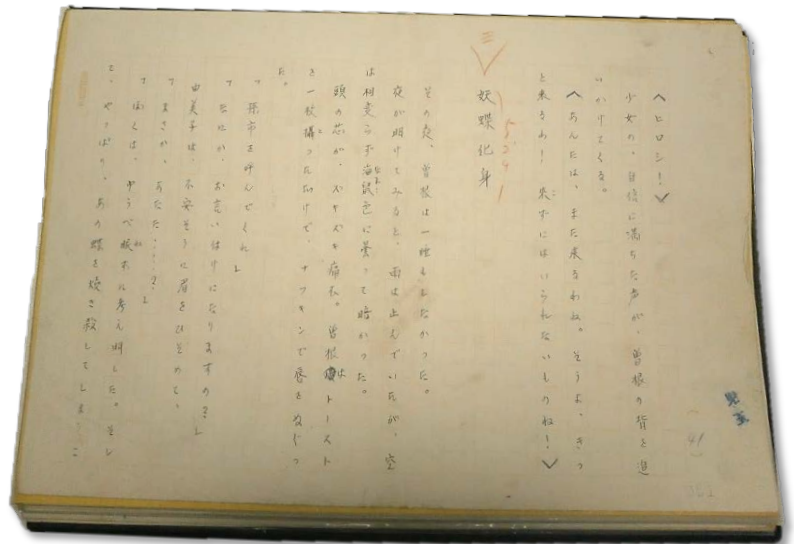 《ヒロシ！》
少女の、自信に満ちた声が、曽根の背を追
いかけてくる。
《あんたは、また来るわね。そうよ、きっ
と来るわ！ 来ずにはいられないものね！》
三
妖蝶化身
その夜、曽根は一睡もしなかった。
夜が明けてみると、雨は止んでいたが、空
は相変らず海鼠色に曇って暗かった。
頭の芯が、ズキズキ痛む。曽根はトースト
を一枚攝っただけで、ナプキンで唇をぬぐっ
た。
「孫市を呼んでくれ」
「なにか、お言いつけになりますの？」
由美子は、不安そうに眉をひそめて、
「まさか、あなた……？」
「ぼくは、ゆうべ寝ずに考え明した。そし
て、やっぱり、あの蝶を焼き殺してしまうこ
(41)